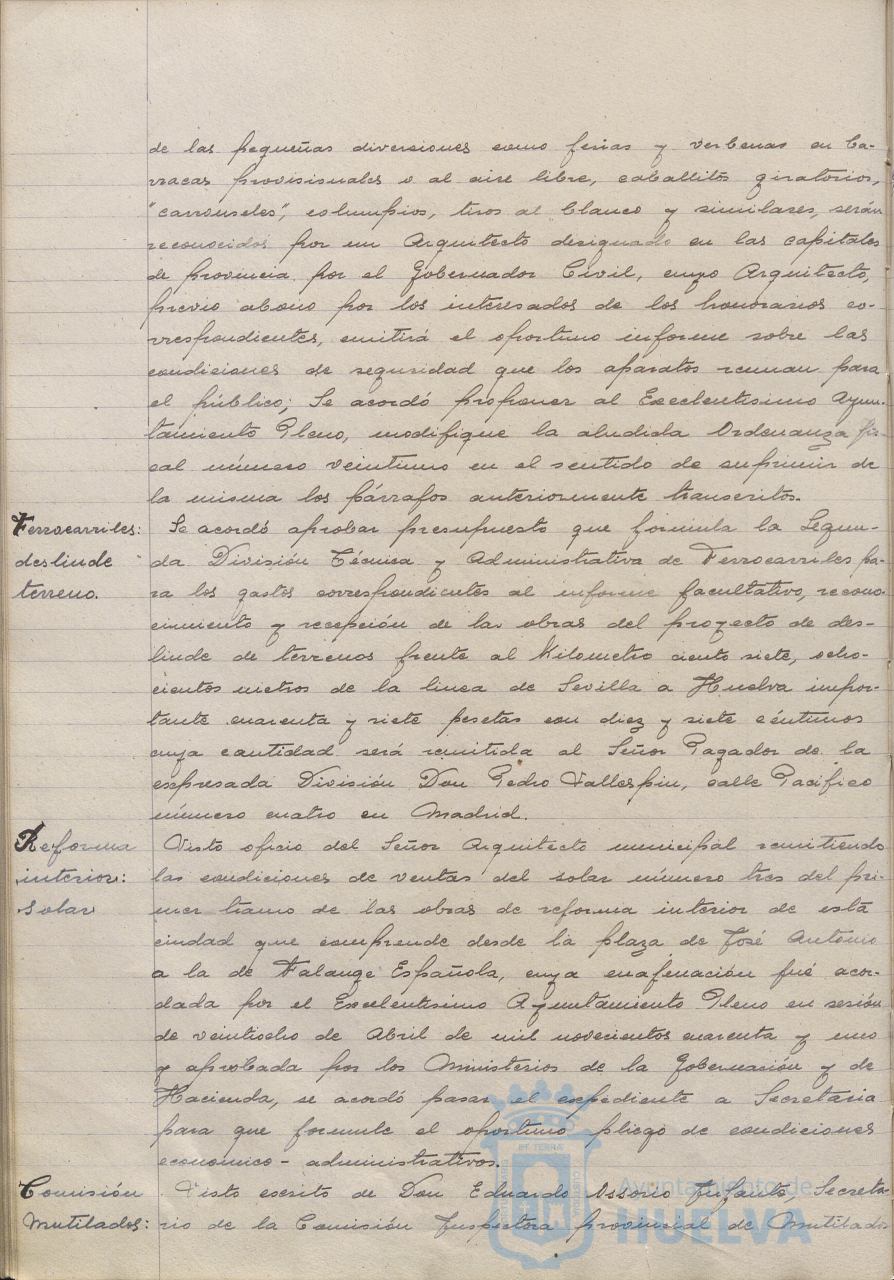 de las pequeñas diversiones como ferias y verbenas en ba-
rracas provisionales o al aire libre, caballitos giratorios,
"carrouseles", columpios, tiros al blanco y similares, serán
reconocidos por un Arquitecto designado en las capitales
de provincia por el Gobernador Civil, cuyo Arquitecto,
previo abono por los interesados de los honorarios co-
rrespondientes, emitirá el oportuno informe sobre las
condiciones de seguridad que los aparatos reunan para
el público; Se acordó proponer al Excelentisimo Ayun-
tamiento Pleno, modifique la aludida Ordenanza fis-
cal número veintiuno en el sentido de suprimir de
la misma los párrafos anteriormente transcritos.
Ferrocarriles: Se acordó aprobar presupuesto que formula la Segun-
deslinde da División Técnica y Administrativa de Ferrocarriles pa-
terreno. ra los gastos correspondientes al informe facultativo, recono-
cimiento y recepción de las obras del proyecto de des-
linde de terrenos frente al Kilometro ciento siete, ocho-
cientos metros de la linea de Sevilla a Huelva impor-
tante cuarenta y siete pesetas con diez y siete céntimos
cuya cantidad será remitida al Señor Pagador de la
expresada División Don Pedro Vallespin, calle Pacifico
número cuatro en Madrid.
Reforma Visto oficio del Señor Arquitecto municipal remitiendo
interior: las condiciones de ventas del solar número tres del pri-
solar mer tramo de las obras de reforma interior de esta
ciudad que comprende desde la plaza de José Antonio
a la de Falange Española, cuya enajenación fué acor-
dada por el Excelentisimo Ayuntamiento Pleno en sesión
de veintiocho de Abril de mil novecientos cuarenta y uno
y aprobada por los Ministerios de la Gobernación y de
Hacienda, se acordó pasar el expediente a Secretaria
para que formule el oportuno pliego de condiciones
economico-administrativos.
Comisión Visto escrito de Don Eduardo Ossorio Infante, Secreta-
Mutilados: rio de la Comisión Inspectora Provincial de Mutilados
Ayuntamiento de
HUELVA